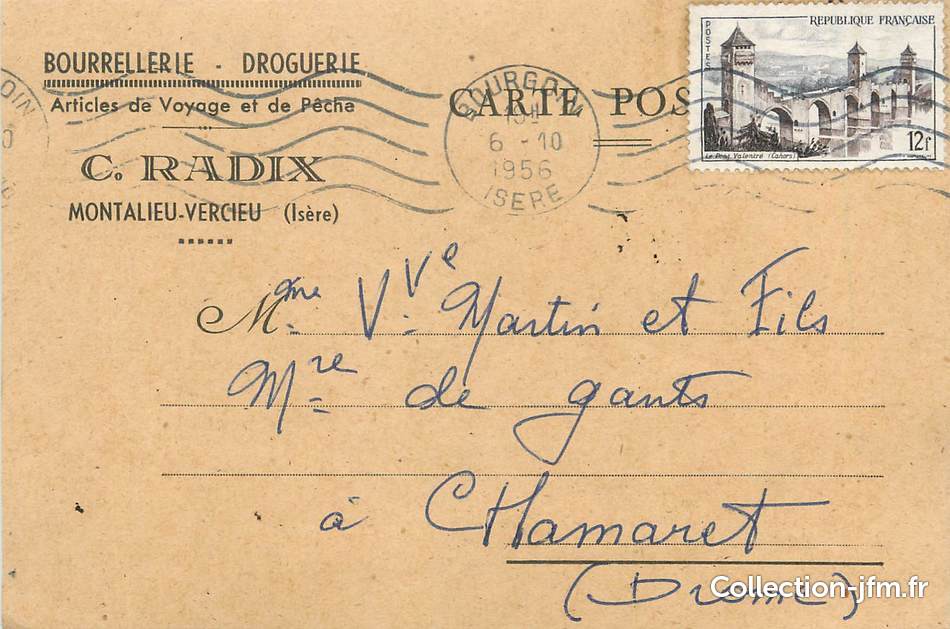 BOURRELLERIE - DROGUERIE
Articles de Voyage et de Pêche
C. RADIX
MONTALIEU-VERCIEU (Isère)
CARTE POS
BOURGOIN
6 - 10
1956
ISERE
POSTES
REPUBLIQUE FRANÇAISE
Le Pont Valentré (Cahors)
12f
OIN
Mme Vve Martin et Fils
Mre de gants
à CHamaret
(Drôme)
Collection-jfm.fr